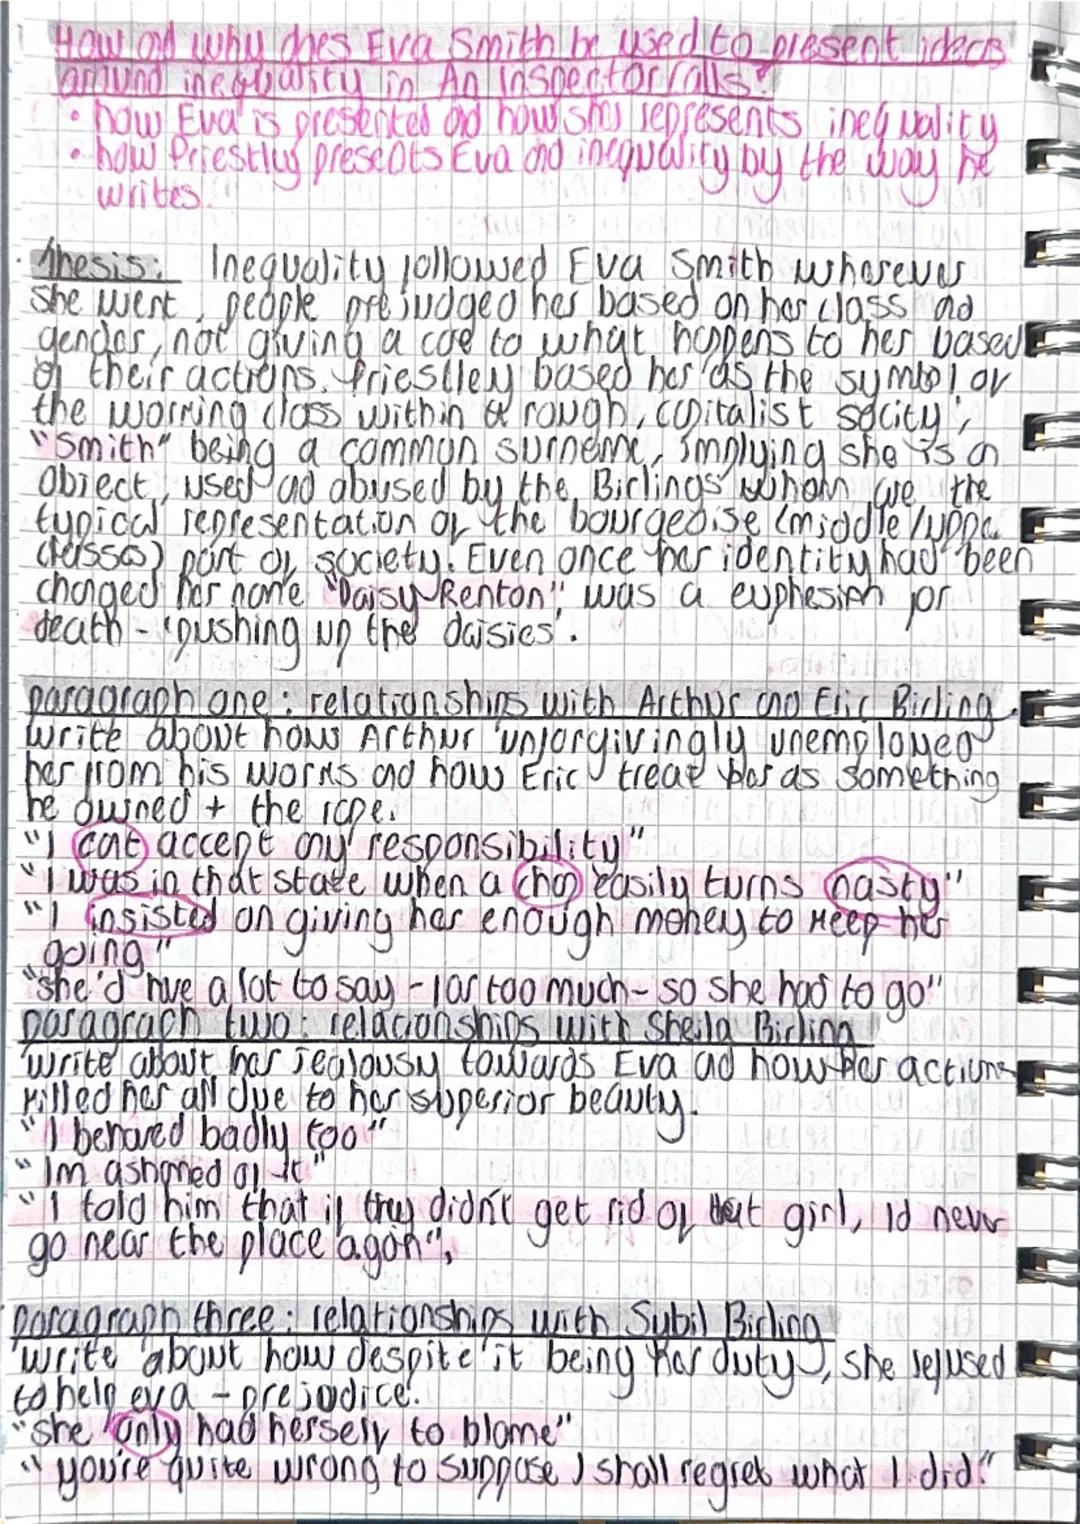 How ad why does Eva Smith be used to present ideas
around inequality in An Inspector Calls?
• how Eva is presented ad how shes represents inequality
• how Priestly presents Eva ad inequality by the way he
writes.
Thesis: Inequality followed Eva Smith wherever
she went, people prejudged her based on her class ad
gender, not giving a care to what happens to her based
of their actions. Priestley based her as the symbol of
the working class within a rough, capitalist socity;
"Smith" being a common surname, implying she is an
object, used ad abused by the Birlings whom are the
typical representation of the bourgeoise (middle/upper
classes) part of society. Even once her identity had been
changed her name "Daisy Renton", was a euphesism for
death - 'pushing up the daisies'.
paragraph one: relationships with Arthur and Eric Birling.
write about how Arthur unforgivingly unemployed
her from his works ad how Eric treat her as something
he owned + the rape.
"I cat accept any responsibility"
"I was in that state when a chap easily turns nasty"
"I insisted on giving her enough money to keep her
going"
"she'd hve a lot to say - far too much - so she had to go"
paragraph two: relationships with Sheila Birling
write about her jealousy towards Eva ad how her actions
killed her all due to her superior beauty.
"I behaved badly too"
"Im ashamed of it"
"I told him that if they didn't get rid of that girl, Id never
go near the place again",
paragraph three: relationships with Sybil Birling
write about how despite it being her duty, she refused
to help eva - prejudice.
"she only had herself to blame"
"you're quite wrong to suppose I shall regret what I did."